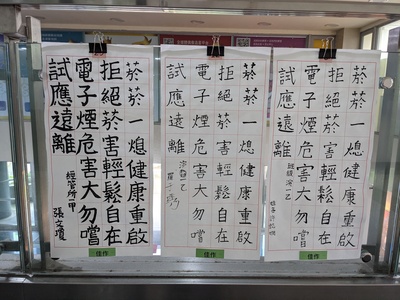 菸菸一熄健康重啟
拒絕菸害輕鬆自在
電子煙危害大勿嚐
試應遠離
經管所一甲
佳作
菸菸一熄健康重啟
拒絕菸害輕鬆自在
電子煙危害大勿嚐
試應遠離
佳作
菸菸一熄健康重啟
拒絕菸害輕鬆自在
電子煙危害大勿嚐
試應遠離
佳作